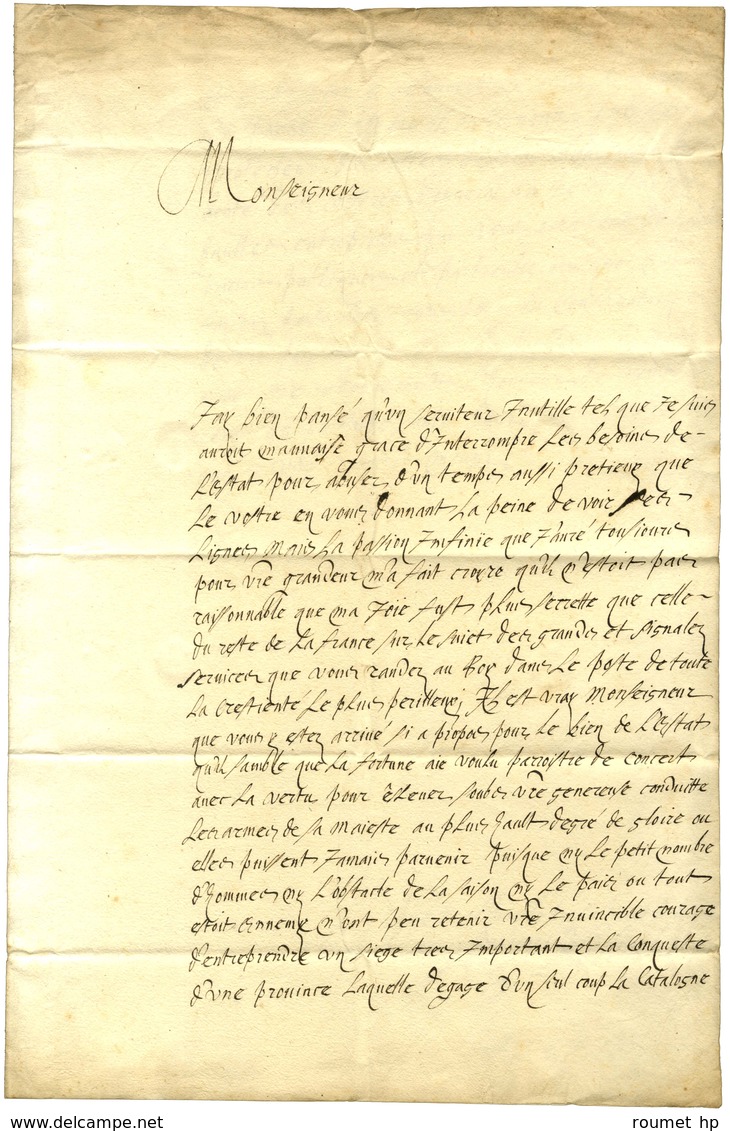 Monseigneur
J'ay bien pansé qu'vn seruiteur Jnutille tel que Je suis
auroit mauuaise grace d'Interrompre Les besoins de
L'estat pour abuser d'vn temps aussi pretieux que
Le vostre en vous donnant La peine de voir ses
Lignes Mais La passion Jnfinie que J'auré tousiours
pour vre grandeur m'a fait croyre qu'il n'estoit pas
raisonnable que ma Joie fust plus secrette que celle
du reste de La france sur Le suiet des grands et signalez
seruices que vous randez au Roy dans Le poste de toute
La Crestienté Le plus perilleux, Jl est vray Monseigneur
que vous y estez arriué si a propos pour Le bien de L'Estat
qu'il samble que La fortune aie voulu parroistre de concert
auec La vertu pour esLeuer soubs vre genereuse conduitte
Les armes de sa Maieste au plus hault degré de gloire ou
elles puissent Jamais paruenir puisque ny Le petit nombre
d'hommes ny L'obstacle de La saison ny Le pais ou tout
estoit ennemy n'ont peu retenir vre Jnuincible courage
d'entreprendre vn siege tres Jmportant et La Conqueste
d'vne prouince Laquelle degage d'vn seul coup La Catalogne
roumet hp
www.delcampe.net